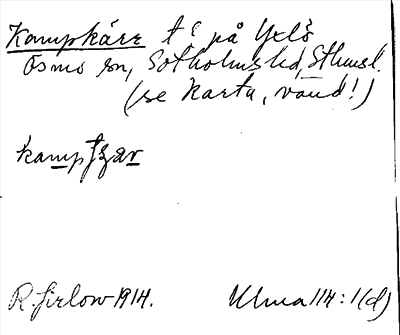 Kampkärr t<sup>é</sup> på Yxlö
Ösmo sn, Sotholms hd, Sthmsl.
(se Karta, vänd!)
kampʃær
R. Jirlow 1914. Ulma 114:1(d)